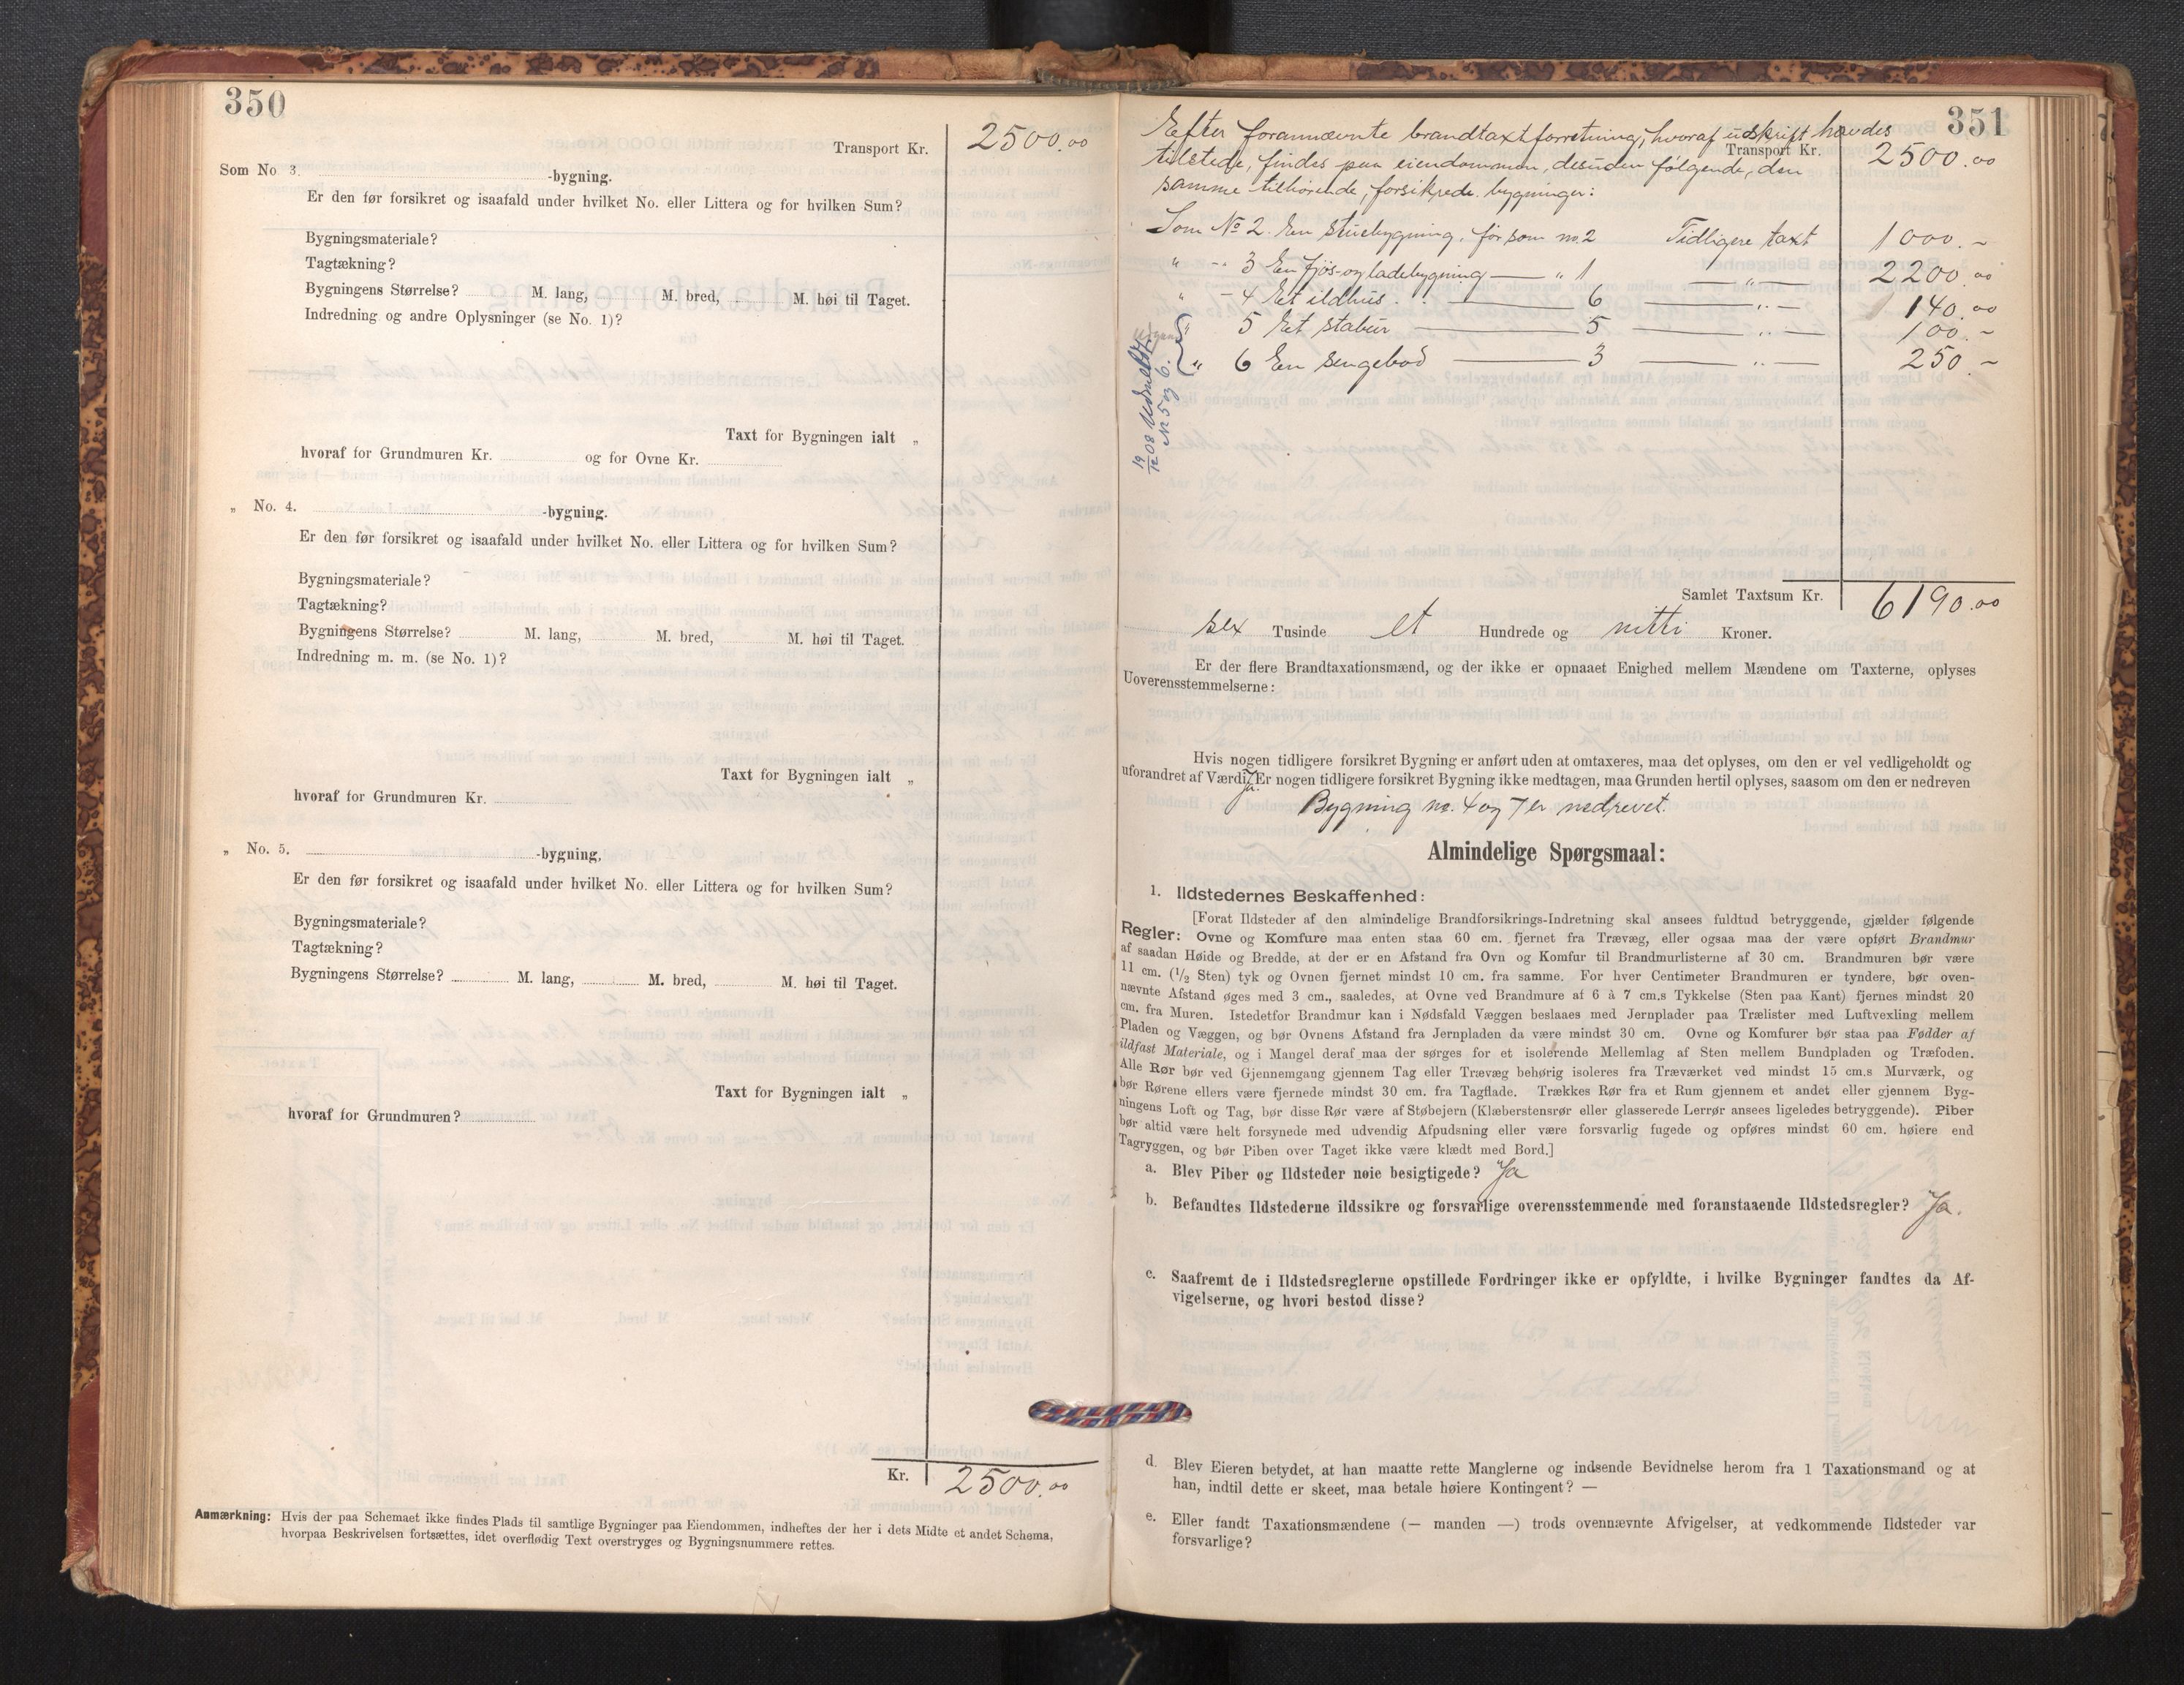 350
Transport Kr. 2500.00
Som No 3. -bygning.
Er den før forsikret og isaafald under hvilket No. eller Littera og for hvilken Sum?
Bygningsmateriale?
Tagtækning?
Bygningens Størrelse? M. lang, M. bred, M. høi til Taget.
Indredning og andre Oplysninger (se No. 1)?
Taxt for Bygningen ialt „
hvoraf for Grundmuren Kr. og for Ovne Kr.
„ No. 4. -bygning.
Er den før forsikret og isaafald under hvilket No. eller Littera og for hvilken Sum?
Bygningsmateriale?
Tagtækning?
Bygningens Størrelse? M. lang, M. bred, M. høi til Taget.
Indredning m. m. (se No. 1)?
Taxt for Bygningen ialt „
hvoraf for Grundmuren Kr.
„ No. 5. -bygning,
Er den før forsikret og isaafald under hvilket No. eller Littera og for hvilken Sum?
Bygningsmateriale?
Tagtækning?
Bygningens Størrelse? M. lang, M. bred, M. høi til Taget.
Taxt for Bygningen ialt „
hvoraf for Grundmuren?
Kr. 2500.00
Anmærkning: Hvis der paa Schemaet ikke findes Plads til samtlige Bygninger paa Eiendommen, indheftes der her i dets Midte et andet Schema,
hvorpaa Beskrivelsen fortsættes, idet overflødig Text overstryges og Bygningsnummere rettes.
351
Efter forannævnte brandtaxtforretning, hvoraf udskrift havdes
Transport Kr. 2500.00
tilstede, findes paa eiendommen, desuden følgende, den
samme tilhørende, forsikrede bygninger:
Som No 2. En stuebygning, før som no. 2 Tidligere taxt 1000.-
" - 3 En fjös- og ladebygning — " 1 " 2200.00
" - 4 Et ildhus — 6 — " — 140.00
" 5 Et stabur — 5 — " — 100.-
" 6 En sengebod — 3 — " — 250.-
19/12 08 Udmeldt
N. 5 og 6.
Samlet Taxtsum Kr. 6190.00
sex Tusinde et Hundrede og nitti Kroner.
Er der flere Brandtaxationsmænd, og der ikke er opnaaet Enighed mellem Mændene om Taxterne, oplyses
Uoverensstemmelserne:
Hvis nogen tidligere forsikret Bygning er anført uden at omtaxeres, maa det oplyses, om den er vel vedligeholdt og
uforandret af Værdi? Er nogen tidligere forsikret Bygning ikke medtagen, maa Grunden hertil oplyses, saasom om den er nedreven
Ja. Bygning no. 4 og 7 er nedrevet.
Almindelige Spørgsmaal:
1. Ildstedernes Beskaffenhed:
[Forat Ildsteder af den almindelige Brandforsikrings-Indretning skal ansees fuldtud betryggende, gjælder følgende
Regler: Ovne og Komfure maa enten staa 60 cm. fjernet fra Trævæg, eller ogsaa maa der være opført Brandmur
af saadan Høide og Bredde, at der er en Afstand fra Ovn og Komfur til Brandmurlisterne af 30 cm. Brandmuren bør være
11 cm. (1/2 Sten) tyk og Ovnen fjernet mindst 10 cm. fra samme. For hver Centimeter Brandmuren er tyndere, bør oven-
nævnte Afstand øges med 3 cm., saaledes, at Ovne ved Brandmure af 6 à 7 cm.s Tykkelse (Sten paa Kant) fjernes mindst 20
cm. fra Muren. Istedetfor Brandmur kan i Nødsfald Væggen beslaaes med Jernplader paa Trælister med Luftvexling mellem
Pladen og Væggen, og bør Ovnens Afstand fra Jernpladen da være mindst 30 cm. Ovne og Komfurer bør staa paa Fødder af
ildfast Materiale, og i Mangel deraf maa der sørges for et isolerende Mellemlag af Sten mellem Bundpladen og Træfoden.
Alle Rør bør ved Gjennemgang gjennem Tag eller Trævæg behørig isoleres fra Træværket ved mindst 15 cm.s Murværk, og
bør Rørene ellers være fjernede mindst 30 cm. fra Tagflade. Trækkes Rør fra et Rum gjennem et andet eller gjennem Byg-
ningens Loft og Tag, bør disse Rør være af Støbejern (Klæberstensrør eller glasserede Lerrør ansees ligeledes betryggende). Piber
bør altid være helt forsynede med udvendig Afpudsning eller være forsvarlig fugede og opføres mindst 60 cm. høiere end
Tagryggen, og bør Piben over Taget ikke være klædt med Bord.]
a. Blev Piber og Ildsteder nøie besigtigede? Ja
b. Befandtes Ildstederne ildssikre og forsvarlige overensstemmende med foranstaaende Ildstedsregler? Ja.
c. Saafremt de i Ildstedsreglerne opstillede Fordringer ikke er opfyldte, i hvilke Bygninger fandtes da Af-
vigelserne, og hvori bestod disse?
d. Blev Eieren betydet, at han maatte rette Manglerne og indsende Bevidnelse herom fra 1 Taxationsmand og at
han, indtil dette er skeet, maa betale høiere Kontingent? —
e. Eller fandt Taxationsmændene (— manden —) trods ovennævnte Afvigelser, at vedkommende Ildsteder var
forsvarlige?